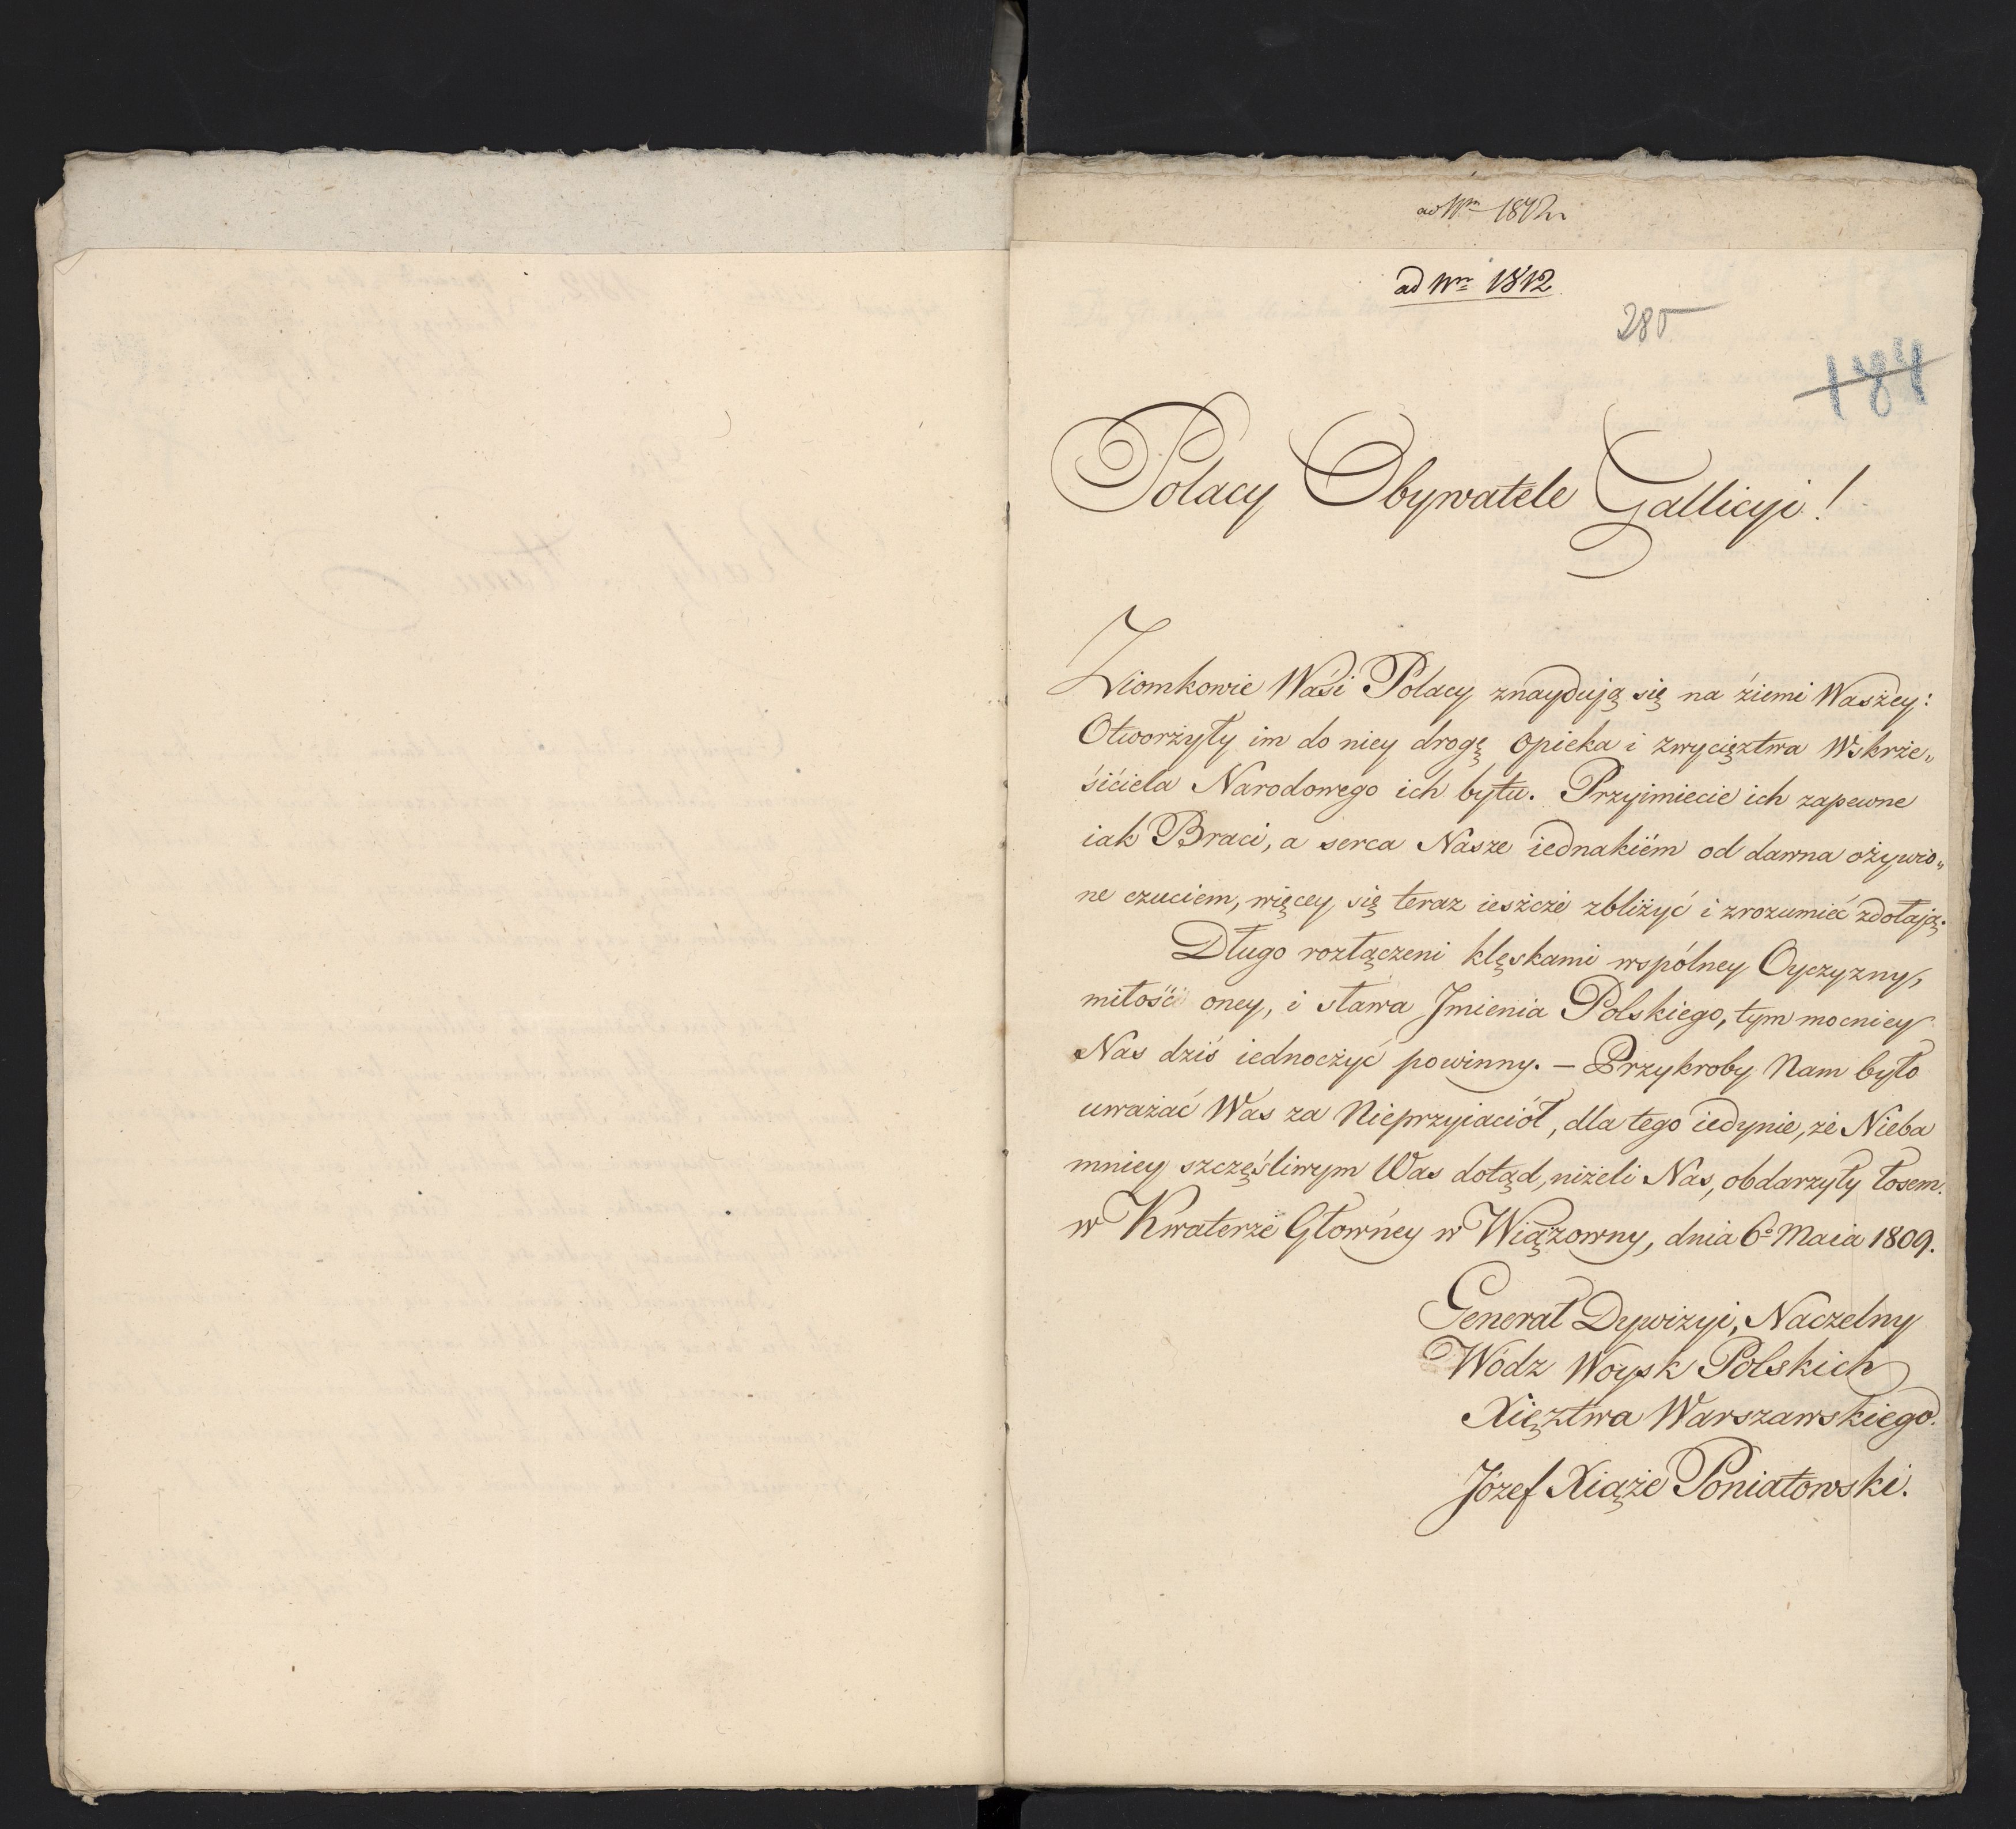 ad Nrm 1812
ad Nrm 1812
280
184
Polacy Obywatele Gallicyi!
Ziomkowie Waśi Polacy znayduią się na źiemi Waszey:
Otworzyły im do niey drogę opieka i zwycięztwa Wskrze„
śićiela Narodowego ich bytu. Przyimiecie ich zapewne
iak Braci, a serca Nasze iednakiém od dawna ożywio„
ne czuciem, więcey się teraz ieszcze zbliżyć i zrozumieć zdołaią.
Długo rozłączeni klęskami wspólney Oyczyzny,
miłość oney, i sława Jmienia Polskiego, tym mocniey
Nas dziś iednoczyć powinny. – Przykroby Nam było
uważać Was za Nieprzyiaciół, dla tego iedynie, że Nieba
mniey szczęśliwym Was dotąd, niżeli Nas, obdarzyły losem.
w Kwaterze Głowney w Wiązowny, dnia 6o Maia 1809.
Generał Dywizyi, Naczelny
Wódz Woysk Polskich
Xięztwa Warszawskiego.
Józef Xiąże Poniatowski.